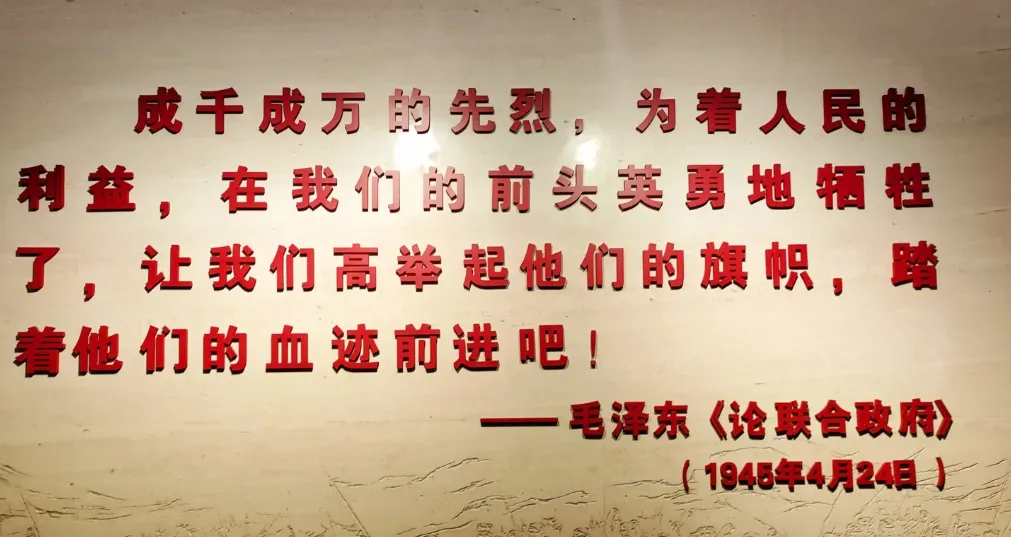 成千成万的先烈，为着人民的
利益，在我们的前头英勇地牺牲
了，让我们高举起他们的旗帜，踏
着他们的血迹前进吧！
——毛泽东《论联合政府》
（1945年4月24日）